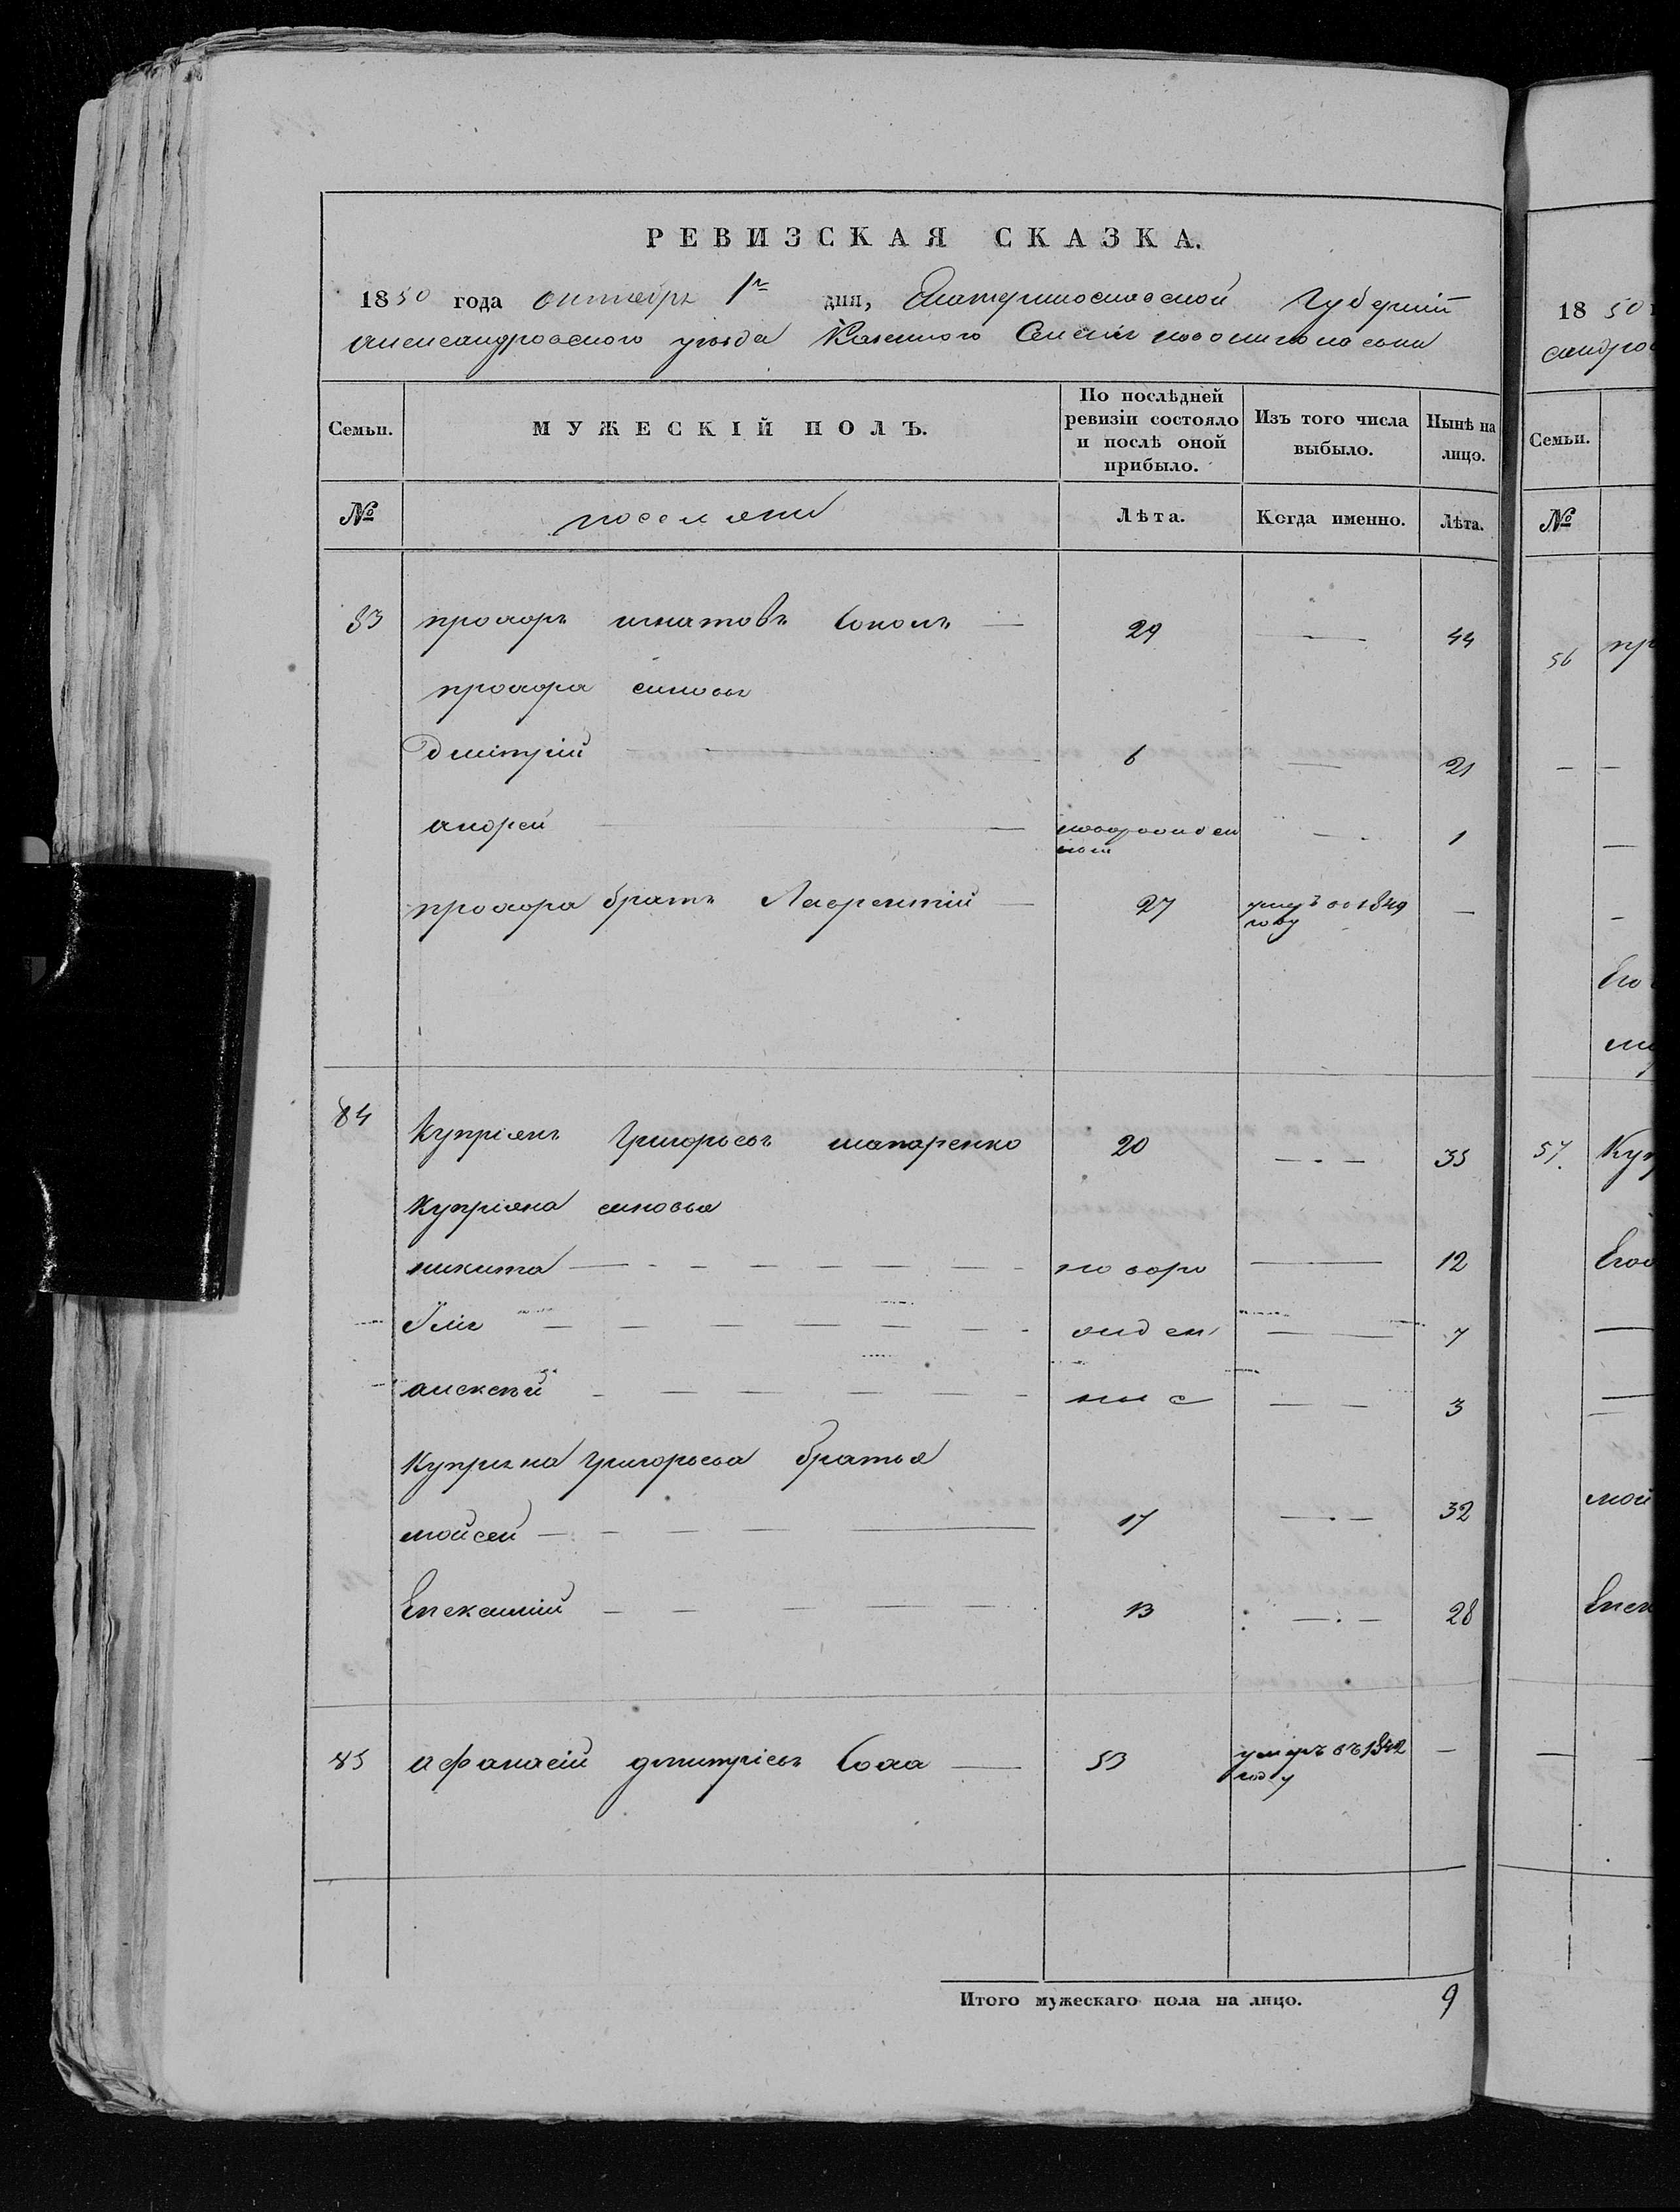 РЕВИЗСКАЯ СКАЗКА.
1850 года октября 1го дня, Екатеринославской Губерніи
александровского уезда Казенного Селенія новониколаевки
Семьи. МУЖЕСКІЙ ПОЛЪ. По послѣдней ревизіи состояло и послѣ оной прибыло. Изъ того числа выбыло. Нынѣ на лицо.
№ поселяни Лѣта. Когда именно. Лѣта.
83 прохоръ игнатовъ Соколъ — 29 — 44
прохора синовья
Дмітрій — 6 — 21
андрей — новорожден — 1
ный
прохора братъ Лаврентій — 27 умеръ въ 1849 —
году
84 Купріянъ Григорьевъ шапаренко 20 — 35
Купріяна синовья
никита — новоро — 12
Ілія — жден — 7
алексѣй — ные — 3
Купріяна григорьева братья
мойсей — 17 — 32
Евексимій — 13 — 28
85 афанасій дмитріевъ Соха — 53 умеръ въ 1842 —
году
Итого мужескаго пола на лицо. 9
18 50
сандров
Семьи.
№
56 пр
Его
57. Куп
Его
мой